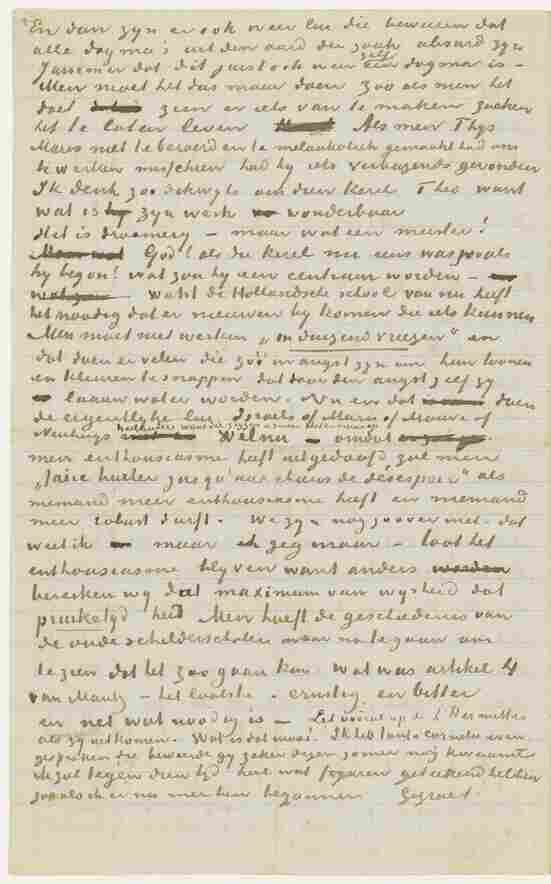 En dan zyn er ook weer lui die beweeren dat
alle dogma's uit den aard der zaak absurd zyn
Jammer dat dit juist ook weer zelf een dogma is –
Men moet het dus maar doen zoo als men het
doet zien er iets van te maken zoeken
het te laten leven Als men Thys
Maris niet te beroerd en te melankoliek gemaakt had om
te werken misschien had hy iets verbazends gevonden
Ik denk zoo dikwyls om dien kerel Theo want
wat is zyn werk wonderbaar
Het is droomery – maar wat een meester!
God! als die kerel nu eens was zooals
hy begon! wat zou hy een centrum worden –
want de Hollandsche school van nu heeft
het noodig dat er nieuwen by komen die iets kunnen
Men moet niet werken „in duizend vreezen" en
dat doen er velen die zóó in angst zyn om hun toonen
en kleuren te snappen dat door den angst zelf zy
laauw water worden. Nu en dat doen
de eigentlyke lui Israels of Maris of Mauve of
Neuhuys Welnu – omdat
men enthousiasme heeft uitgedoofd zal men
„faire hurler jusqu'aux chiens de désespoir" als
niemand meer enthousiasme heeft en niemand
meer robust durft. We zyn nog zoover niet – dat
weet ik maar ik zeg maar – laat het
enthousiasme blyven want anders
bereiken wy dat maximum van wysheid dat
pruiketyd heit Men hoeft de geschiedenis van
de oude schilderscholen maar na te gaan om
te zien dat het zoo gaan kan wat was artikel 4
van Mantz – het laatste – ernstig en bitter
en net wat noodig is – Let vooral op de L'Hermittes
als zy uitkomen. Wat is dat mooi. Ik heb tante Cornelie even
gesproken die beweerde gy zeker dezen zomer nog kwaamt
Ik zal tegen dien tyd heel wat figuren geteekend hebben
zooals ik er nu mee ben begonnen Gegroet